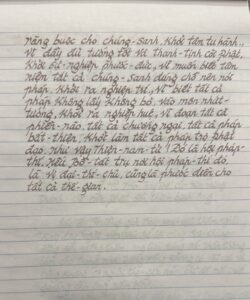 răng buộc cho chúng-sanh. Khởi tâm tu hành,
vì đầy đủ tướng tốt về thanh-tịnh cõi Phật.
Khởi sự-nghiệp phước-đức, vì muốn biết tâm
niệm tất cả chúng-sanh đúng chỗ nên nói
pháp. Khởi ra nghiệp trí, vì biết tất cả
pháp không lấy không bỏ, vào môn nhứt-
tướng. Khởi ra nghiệp huệ, vì đoạn tất cả
phiền-não, tất cả chướng ngại, tất cả pháp
bất-thiện, Khởi làm tất cả pháp trợ Phật
đạo. Như vậy Thiện-nam-tử! Đó là hội pháp-
thí. Nếu Bồ-tát trụ nơi hội pháp-thí đó,
là vị đại-thí-chủ, cũng là phước điền cho
tất cả thế-gian.